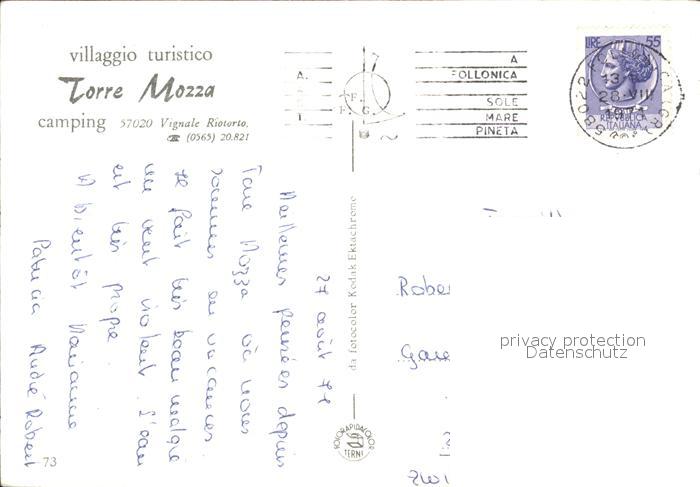 villaggio turistico
Torre Mozza
camping 57020 Vignale Riotorto,
☎ (0565) 20.821
A
FOLLONICA
SOLE
MARE
PINETA
LIRE 55
REPVBBLICA
ITALIANA
58022
28 VIII
27 août 71
Meilleures pensées depuis
Torre Mozza où nous
sommes en vacances.
Il fait très beau malgré
un vent violent. L'eau
est très propre.
A bientôt Marianne
Patricia André Robert
da fotocolor Kodak Ektachrome
FOTORAPIDACOLOR
TERNI
73
Rober
Gare
privacy protection
Datenschutz